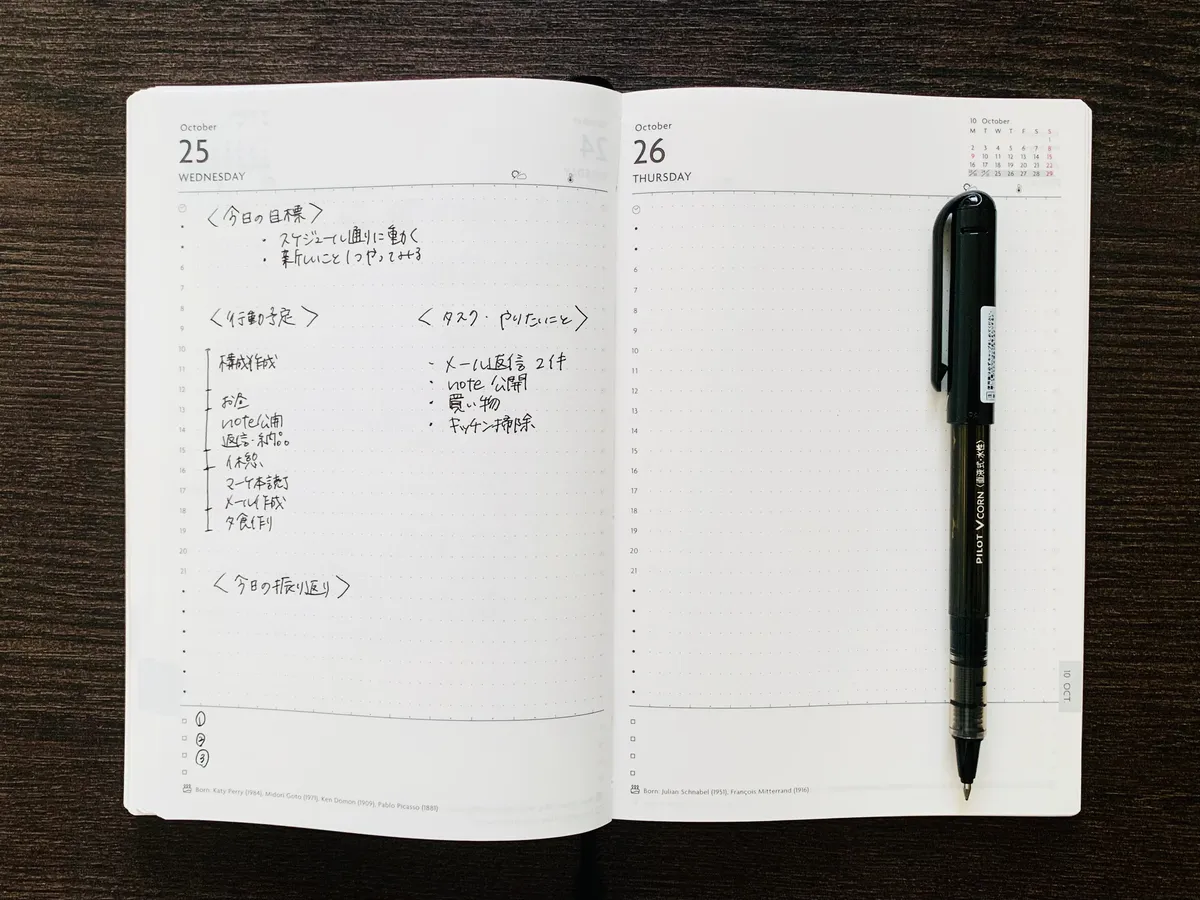 October
25
WEDNESDAY
〈今日の目標〉
・スケジュール通りに動く
・新しいこと1つやってみる
6
7
8
9
10
11
12
13
14
15
16
17
18
19
20
21
〈行動予定〉
構成作成
お昼
note公開
返信・納品
休憩
マーケ本読了
メール作成
夕食作り
〈タスク・やりたいこと〉
・メール返信 2件
・note 公開
・買い物
・キッチン掃除
〈今日の振り返り〉
①
②
③
Born: Katy Perry (1984), Midori Goto (1971), Ken Domon (1909), Pablo Picasso (1881)
October
26
THURSDAY
10 October
M T W T F S S
1
2 3 4 5 6 7 8
9 10 11 12 13 14 15
16 17 18 19 20 21 22
23/30 24/31 25 26 27 28 29
6
7
8
9
10
11
12
13
14
15
16
17
18
19
20
21
PILOT V CORN〈直液式・水性〉
10 OCT
Born: Julian Schnabel (1951), François Mitterrand (1916)